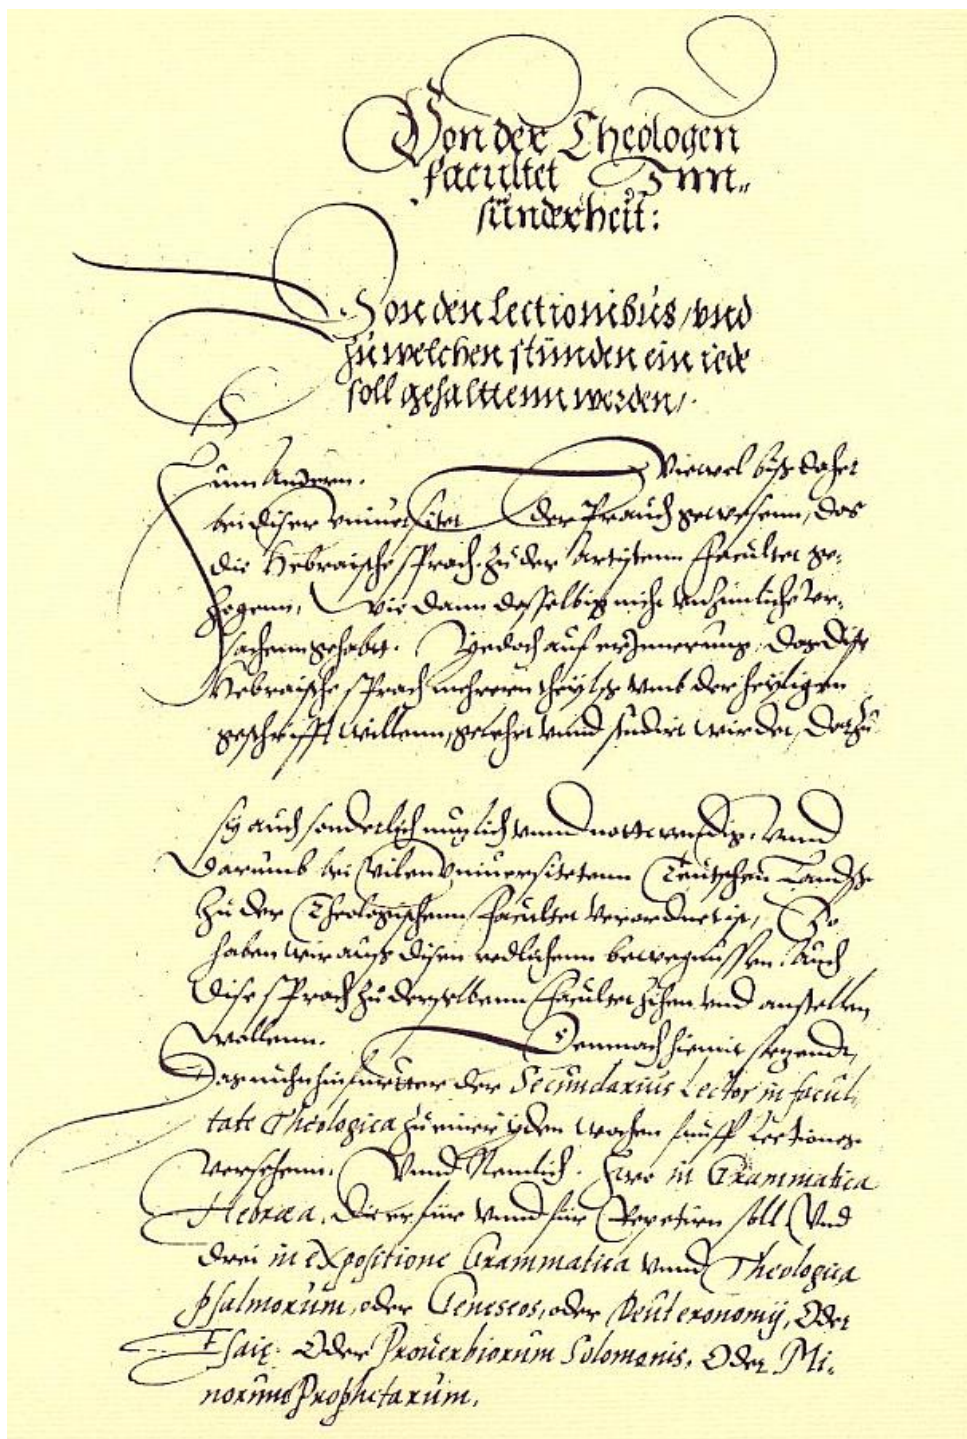 Von der Theologen
facultet Inn„
sünderheit:
Von den Lectionibus, vnd
zu welchen stunden ein iede
soll gehalttenn werden,
Zum Andern. Wiewol biß daher
bei diser vniuersitet der Prauch gewesenn, das
die Hebraische sprach zu der Artistenn Facultet ge-
zogenn, Wie dann desselbig nicht vnhimliche Vr-
sachenn gehabt. Yedoch auf erinnerung, das dise
Hebraische sprach mehrern theyls vmb der heyligen
geschrifft willenn, gelehrt vnnd studirt wirdet, darzu
sy auch sonderlich nuzlich vnnd nottwendig. Vnnd
darumb bei vilen Vniuersitetenn Teutschen Lands
zu der Theologischenn Facultet verordnet ist, So
haben wir auß disen redlichenn bewegnussen, Auch
dise sprach zu derselbenn Facultet zihen vnd anstellen
wöllenn. Demnach hiemit sezende,
Das nuhn hinfurtter der Secundarius Lector in facul-
tate Theologica zu einer yden wochen funff Lectiones
versehenn. Vnnd Nemlich. Zwo in Grammatica
Hebræa, die er für vnnd für Repetirn soll, Vnd
drei in expositione Grammatica vnnd Theologica
psalmorum, oder Geneseos, oder Deuteronomij, Oder
Esaię. Oder Prouerbiorum Solomonis, Oder Mi-
norum Prophetarum.